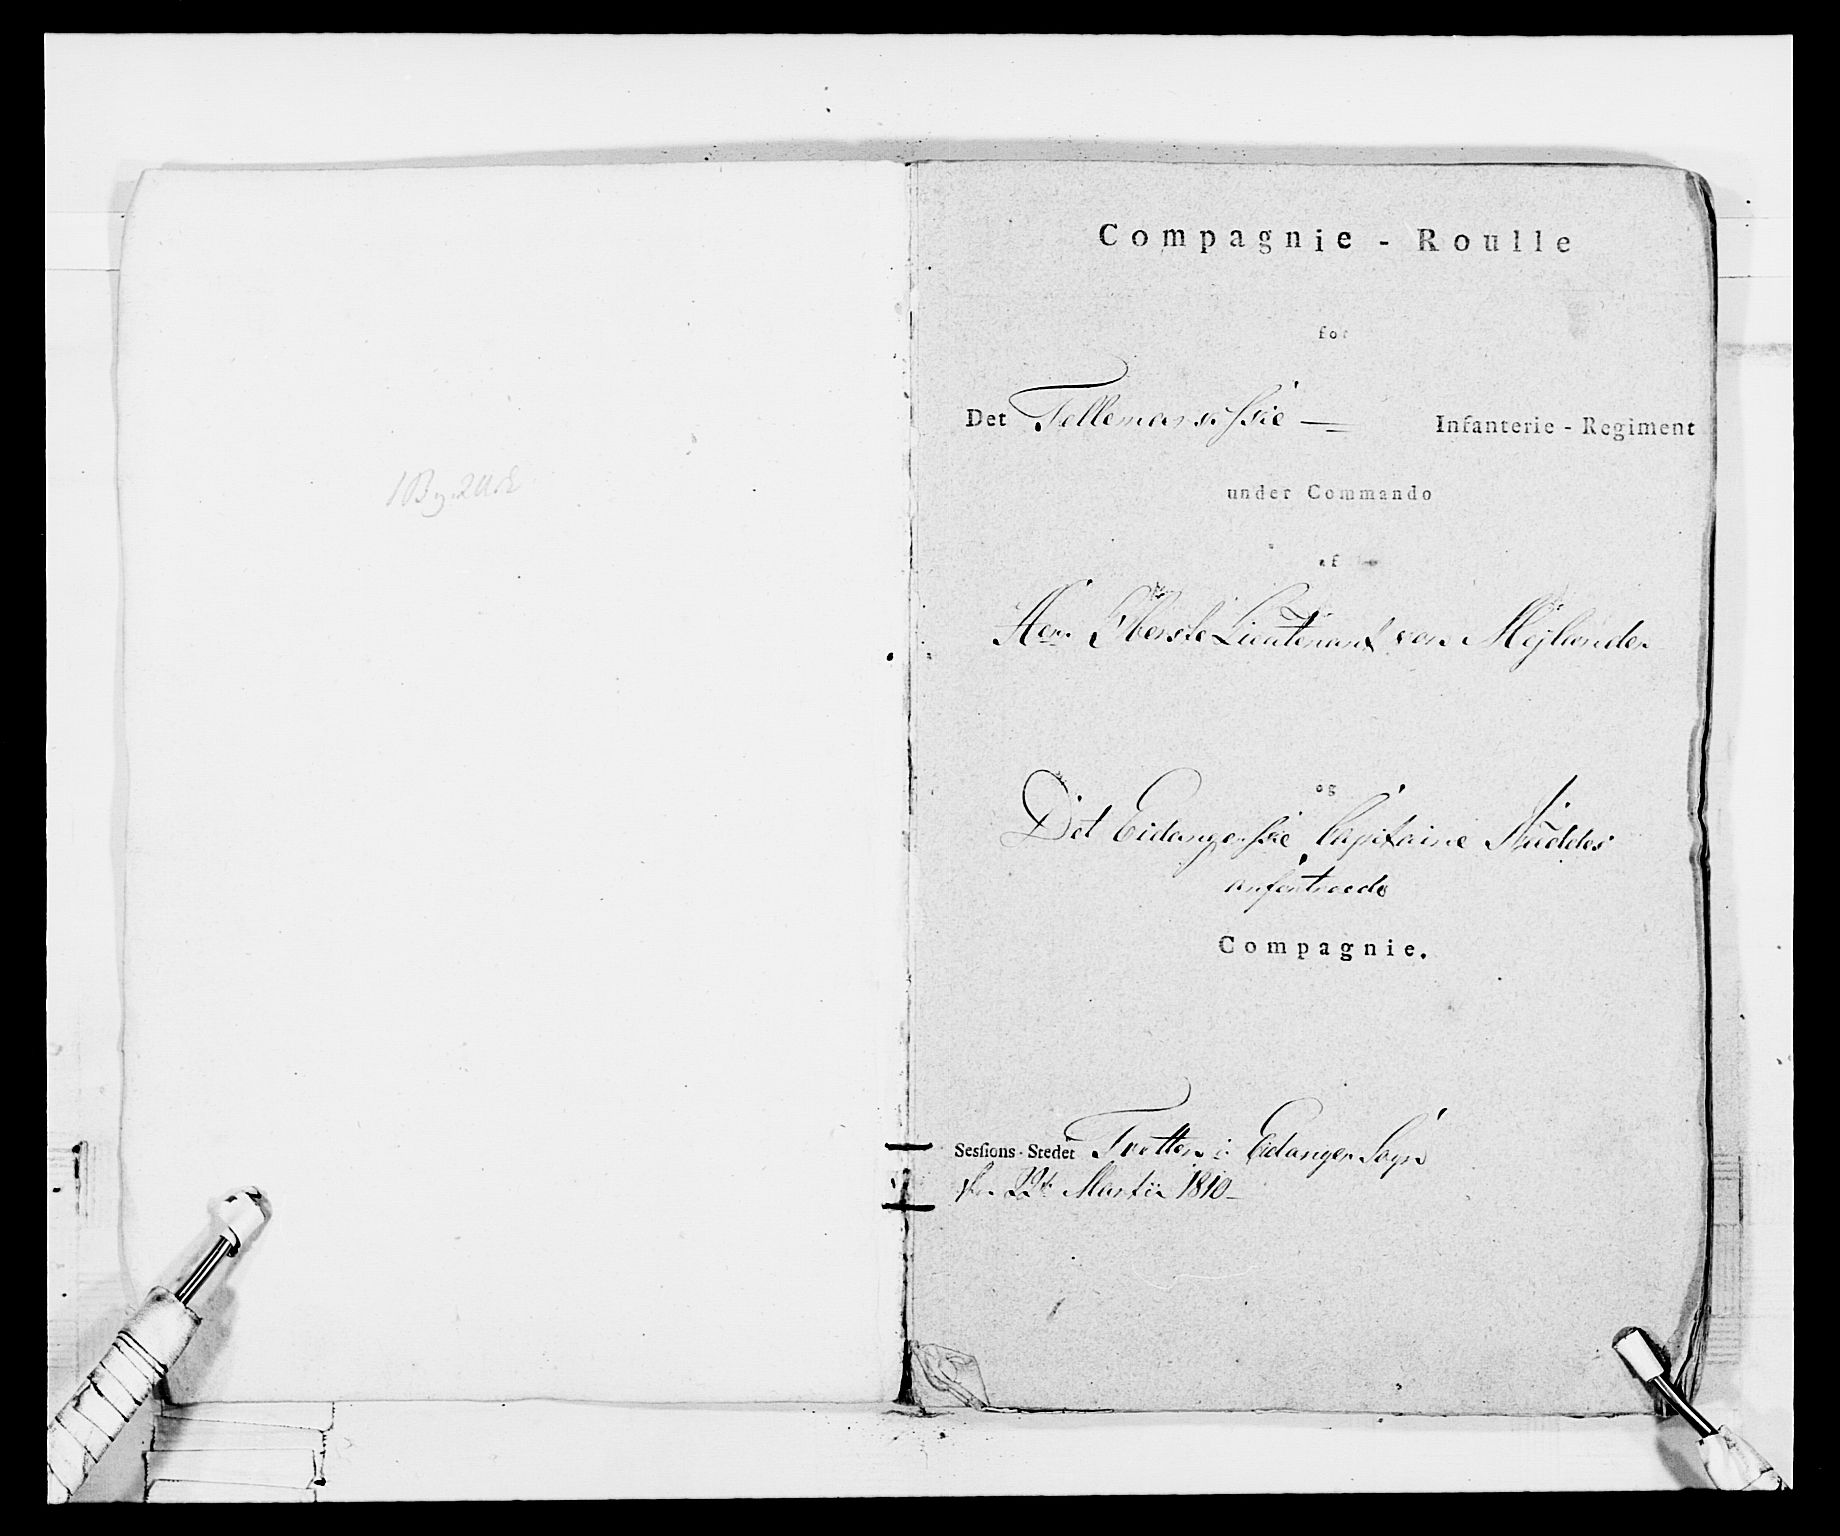 Compagnie - Roulle
for
Det Tellemarkske Infanterie - Regiment
under Commando
af
Herr Oberste Lieutenant von Mejlænder
og
Det Eidangerske Capitaine
anfortroede
Compagnie.
Sessions-Stedet Tvetten i Eidanger Sogn
22de Martii 1810